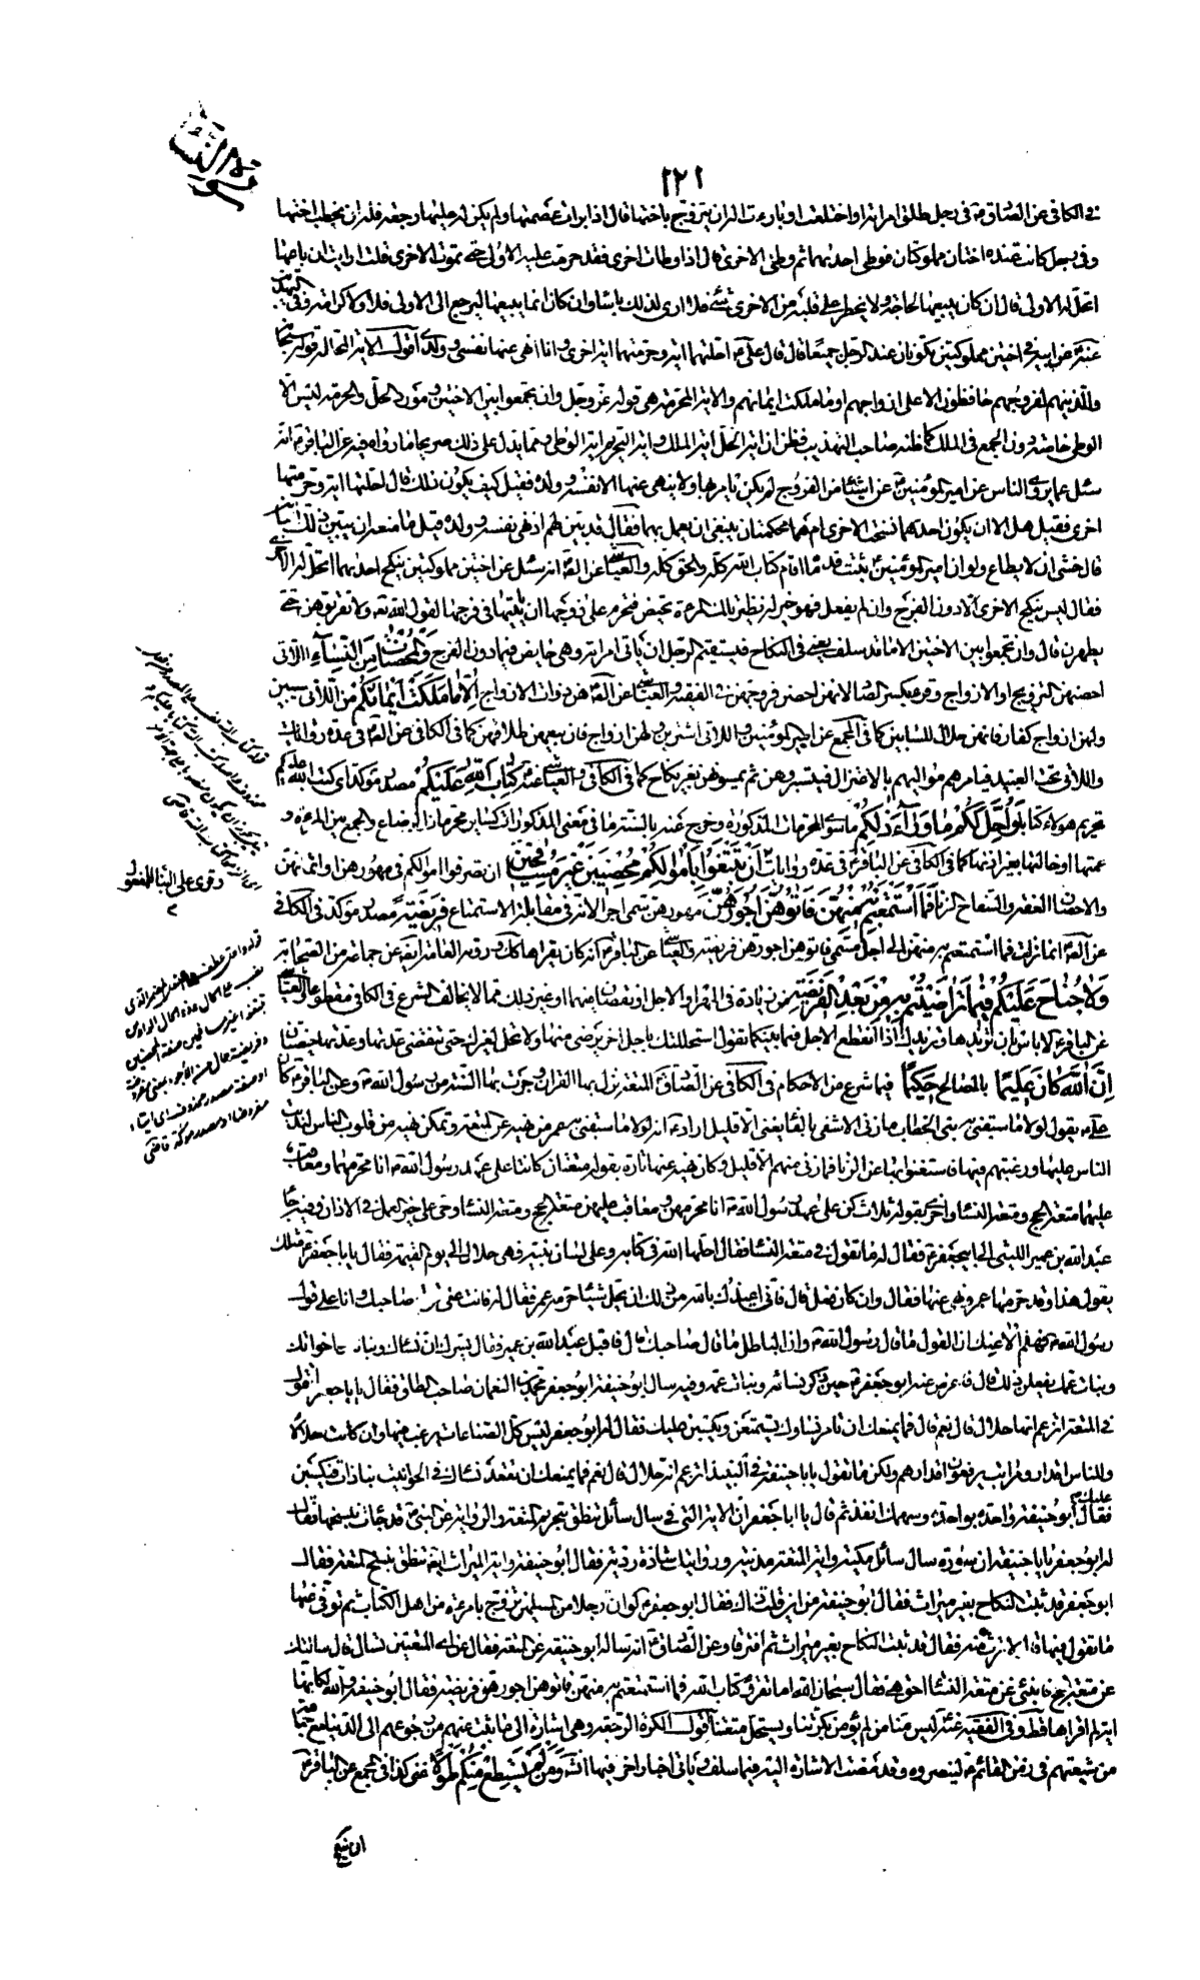 سورة النساء
٢٢١
في الكافي عن الصادق ع في رجل طلق امرأته او اختلعت او بارءت اله ان يتزوج باختها قال اذا برأت عصمتها ولم يكن له عليها رجعة فله ان يخطب اختها
وفي رجل كانت عنده اختان مملوكتان فوطى احديهما ثم وطى الاخرى قال اذا وطأت اخرى فقد حرمت عليه الاولى حتى تموت الاخرى قلت ارايت ان باعها
اتحل له الاولى قال ان كان يبيعها لحاجة ولا يخطر على قلبه من الاخرى شئ فلا ارى لذلك باسا وان كان انما يبيعها ليرجع الى الاولى فلا ولا كرامة وفي التهذيب
عنه ع عن ابيه في اختين مملوكتين تكونان عند الرجل جميعا قال قال علي ع احلتهما اية وحرمتهما اية اخرى وانا انهى عنهما نفسي وولدي اقول الاية المحلة قوله سبحانه
والذين هم لفروجهم حافظون الا على ازواجهم او ما ملكت ايمانهم والاية المحرمة هي قوله عز وجل وان تجمعوا بين الاختين ومورد الحل والحرمة ليس الا
الوطي خاصة دون الجمع في الملك كما ظنه صاحب التهذيب فظن ان اية الحل اية الملك واية التحريم اية الوطي ومما يدل على ذلك صريحا ما رواه فيه عن الباقر ع انه
سئل عما يروي الناس عن امير المؤمنين ع عن اشياء من الفروج لم يكن يامر بها ولا ينهى عنها الا نفسه وولده فقيل كيف يكون ذلك قال احلتها اية وحرمتها
اخرى فقيل هل الا ان يكون احدهما نسخت الاخرى ام هما محكمتان ينبغي ان يعمل بهما فقال قد بين لهم اذ نهى نفسه وولده قيل ما منعه ان يبين ذلك للناس
قال خشى ان لا يطاع ولو ان امير المؤمنين ع ثبتت قدماه اقام كتاب الله كله والحق كله والعياشي عن الصادق ع انه سئل عن اختين مملوكتين ينكح احديهما اتحل له الاخرى
فقال ليس ينكح الاخرى الا دون الفرج وان لم يفعل فهو خير له نظير تلك المرءة تحيض فتحرم على زوجها ان ياتيها في فرجها لقول الله تعالى ولا تقربوهن حتى
يطهرن قال وان تجمعوا بين الاختين الا ما قد سلف يعني في النكاح فيستقيم للرجل ان ياتي امرأته وهي حايض فيما دون الفرج وَالْمُحْصَنَاتُ مِنَ النِّسَآءِ اللاتي
احصنهن التزويج او الازواج وقرء بكسر الصاد لانهن احصن فروجهن في الفقيه والعياشي عن الصادق ع هن ذوات الازواج اِلّا مَا مَلَكَتْ اَيْمَانُكُمْ من اللاتي سبين
ولهن ازواج كفار فانهن حلال للسابين كما في المجمع عن امير المؤمنين ع واللاتي اشترين ولهن ازواج فان بيعهن طلاقهن كما في الكافي عن الصادق ع في عدة روايات
واللاتي تحت العبيد فيامرهم مواليهم بالاعتزال فيستبرؤهن ثم يمسوهن بغير نكاح كما في الكافي والعياشي عنه ع كِتَابَ اللهِ عَلَيْكُمْ مصدر مؤكد اي كتب الله عليكم
تحريم هؤلاء كتابا وَاُحِلَّ لَكُمْ مَا وَرَآءَ ذٰلِكُمْ ما سوى المحرمات المذكورة وخرج عنه بالسنة ما في معنى المذكورات كساير محرمات الرضاع والجمع بين المرءة و
عمتها او خالتها بغير اذنها كما في الكافي عن الباقر ع في عدة روايات اَنْ تَبْتَغُوا بِاَمْوَالِكُمْ مُحْصِنِينَ غَيْرَ مُسَافِحِينَ ان تصرفوا اموالكم في مهورهن او اثمانهن
والاحصان العفة والسفاح الزنا فَمَا اسْتَمْتَعْتُمْ بِهِ مِنْهُنَّ فَاٰتُوهُنَّ اُجُورَهُنَّ مهورهن سمى اجرا لانه في مقابلة الاستمتاع فَرِيضَةً مصدر مؤكد في الكافي
عن الصادق ع انما نزلت فما استمتعتم به منهن الى اجل مسمى فاتوهن اجورهن فريضة والعياشي عن الباقر ع انه كان يقرأها كذلك وروته العامة ايضا عن جماعة من الصحابة
وَلَا جُنَاحَ عَلَيْكُمْ فِيمَا تَرَاضَيْتُمْ بِهِ مِنْ بَعْدِ الْفَرِيضَةِ من زيادة في المهر او الاجل او نقصان فيهما او غير ذلك مما لا يخالف الشرع في الكافي مقطوعا والعياشي
عن الباقر ع لا باس بان تزيدها وتزيدك اذا انقطع الاجل فيما بينكما تقول استحللتك باجل اخر برضى منها ولا تحل لغيرك حتى تنقضي عدتها وعدتها حيضتان
اِنَّ اللهَ كَانَ عَلِيمًا بالمصالح حَكِيمًا فيما شرع من الاحكام في الكافي عن الصادق ع المتعة نزل بها القران وجرت بها السنة من رسول الله ص وعن الباقر ع كان
علي ع يقول لولا ما سبقني به بني الخطاب ما زنى الا شفى بالفاء يعني الا قليل اراد انه لولا ما سبقني به عمر من نهيه عن المتعة وتمكن نهيه من قلوب الناس لندبت
الناس عليها ورغبتهم فيها فاستغنوا بها عن الزنا فما زنى منهم الا قليل وكان نهيه عنها تارة بقوله متعتان كانتا على عهد رسول الله ص انا محرمهما ومعاقب
عليهما متعة الحج ومتعة النساء واخرى بقوله ثلاث كن على عهد رسول الله ص انا محرمهن ومعاقب عليهن متعة الحج ومتعة النساء وحي على خير العمل في الاذان وفيه جاء
عبد الله بن عمير الليثي الى ابي جعفر ع فقال له ما تقول في متعة النساء فقال احلها الله في كتابه وعلى لسان نبيه فهي حلال الى يوم القيمة فقال يابا جعفر مثلك
يقول هذا وقد حرمها عمر ونهى عنها فقال وان كان فعل قال فاني اعيذك بالله من ذلك ان تحل شيئا حرمه عمر فقال له فانت على قول صاحبك وانا على قول
رسول الله ص فهلم الاعنك ان القول ما قال رسول الله ص وان الباطل ما قال صاحبك قال فاقبل عبد الله بن عمير فقال يسرك ان نساءك وبناتك واخواتك
وبنات عمك يفعلن ذلك قال فاعرض عنه ابو جعفر ع حين ذكر نساءه وبنات عمه وفيه سال ابو حنيفة ابو جعفر محمد بن النعمان صاحب الطاق فقال يابا جعفر ما تقول
في المتعة اتزعم انها حلال قال نعم قال فما يمنعك ان تامر نساءك يستمتعن ويكتسبن عليك فقال له ابو جعفر ليس كل الصناعات يرغب فيها وان كانت حلالا
وللناس اقدار ومراتب يرفعون اقدارهم ولكن ما تقول يابا حنيفة في النبيذ اتزعم انه حلال قال نعم قال فما يمنعك ان تقعد نساءك في الحوانيت نباذات فيكسبن
عليك
فقال ابو حنيفة واحدة بواحدة وسهمك انفذ ثم قال يا ابا جعفر ان الاية التي في سال سائل تنطق بتحريم المتعة والرواية عن النبي ص قد جاءت بنسخها فقال
له ابو جعفر يابا حنيفة ان سورة سال سائل مكية واية المتعة مدنية وروايتك شاذة ردية فقال ابو حنيفة واية الميراث ايضا تنطق بنسخ المتعة فقال
ابو جعفر قد ثبت النكاح بغير ميراث فقال ابو حنيفة من اين قلت ذاك فقال ابو جعفر لو ان رجلا من المسلمين تزوج بامرءة من اهل الكتاب ثم توفى عنها
ما تقول فيها قال لا ترث منه فقال قد ثبت النكاح بغير ميراث ثم افترقا وعن الصادق ع انه ساله ابو حنيفة عن المتعة فقال عن اي المتعتين تسال قال سالتك
عن متعة الحج فانبئني عن متعة النساء احق هي فقال سبحان الله اما تقرء كتاب الله فما استمتعتم به منهن فاتوهن اجورهن فريضة فقال ابو حنيفة والله لكانها
اية لم اقرأها قط وفي الفقيه عنه ع ليس منا من لم يؤمن بكرتنا ويستحل متعتنا اقول الكرة الرجعة وهي اشارة الى ما ثبت عنهم من رجوعهم الى الدنيا مع جماعة
من شيعتهم في زمن القائم ع لينصروه وقد مضت الاشارة اليه فيما سلف وياتي اخبار اخر فيها انشاء الله وَمَنْ لَمْ يَسْتَطِعْ مِنْكُمْ طَوْلًا غنى كذا في المجمع عن الباقر ع
وقرى على البناء للمفعول
ان ينكح